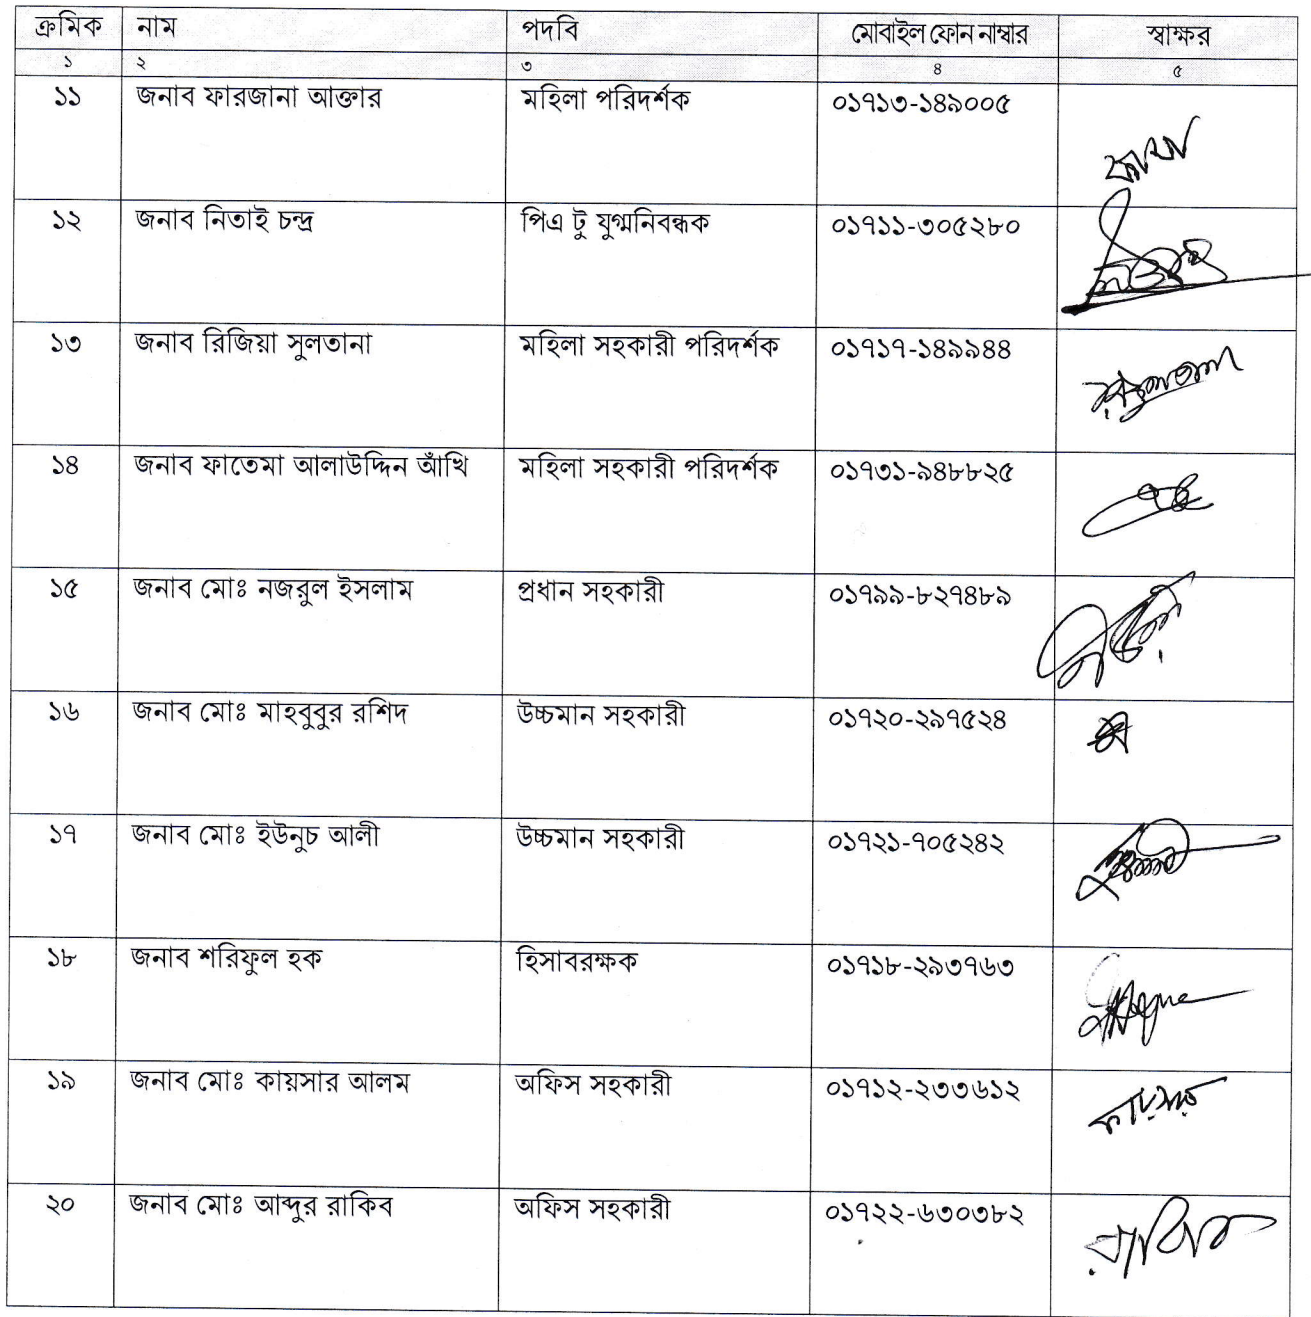 ক্রমিক নাম পদবি মোবাইল ফোন নাম্বার স্বাক্ষর
১ ২ ৩ ৪ ৫
১১ জনাব ফারজানা আক্তার মহিলা পরিদর্শক ০১৭১৩-১৪৯০০৫
১২ জনাব নিতাই চন্দ্র পিএ টু যুগ্মনিবন্ধক ০১৭১১-৩০৫২৮০
১৩ জনাব রিজিয়া সুলতানা মহিলা সহকারী পরিদর্শক ০১৭১৭-১৪৯৯৪৪
১৪ জনাব ফাতেমা আলাউদ্দিন আঁখি মহিলা সহকারী পরিদর্শক ০১৭৩১-৯৪৮৮২৫
১৫ জনাব মোঃ নজরুল ইসলাম প্রধান সহকারী ০১৭৯৯-৮২৭৪৮৯
১৬ জনাব মোঃ মাহবুবুর রশিদ উচ্চমান সহকারী ০১৭২০-২৯৭৫২৪
১৭ জনাব মোঃ ইউনুচ আলী উচ্চমান সহকারী ০১৭২১-৭০৫২৪২
১৮ জনাব শরিফুল হক হিসাবরক্ষক ০১৭১৮-২৯৩৭৬৩
১৯ জনাব মোঃ কায়সার আলম অফিস সহকারী ০১৭১২-২৩৩৬১২ কায়সার
২০ জনাব মোঃ আব্দুর রাকিব অফিস সহকারী ০১৭২২-৬৩০৩৮২ রাকিব